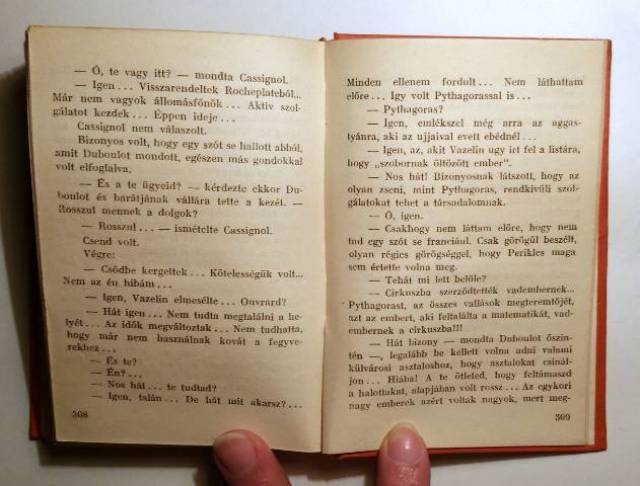 — Ó, te vagy itt? — mondta Cassignol.
— Igen... Visszarendeltek Rocheplateból...
Már nem vagyok állomásfőnök... Aktiv szol-
gálatot kezdek... Éppen ideje...
Cassignol nem válaszolt.
Bizonyos volt, hogy egy szót se hallott abból,
amit Duboulot mondott, egészen más gondokkal
volt elfoglalva.
— És a te ügyeid? — kérdezte ekkor Du-
boulot és barátjának vállára tette a kezét. —
Rosszul mennek a dolgok?
— Rosszul... — ismételte Cassignol.
Csend volt.
Végre:
— Csődbe kergettek... Kötelességük volt...
Nem az én hibám...
— Igen, Vazelin elmesélte... Ouvrard?
— Hát igen... Nem tudta megtalálni a he-
lyét... Az idők megváltoztak... Nem tudhatta,
hogy már nem használnak kovát a fegyve-
rekhez...
— És te?
— Én?...
— Nos hát... te tudtad?
— Igen, talán... De hát mit akarsz?...
308
Minden ellenem fordult... Nem láthattam
előre... Igy volt Pythagorassal is...
— Pythagoras?
— Igen, emlékszel még arra az aggas-
tyánra, aki az ujjaival evett ebédnél...
— Igen, az, akit Vazelin ugy irt fel a listára,
hogy „szobornak öltözött ember".
— Nos hát! Bizonyosnak látszott, hogy az
olyan zseni, mint Pythagoras, rendkivüli szol-
gálatokat tehet a társadalomnak.
— Ó, igen.
— Csakhogy nem láttam előre, hogy nem
tud egy szót se franciául. Csak görögül beszélt,
olyan régies görögséggel, hogy Perikles maga
sem értette volna meg.
— Tehát mi lett belőle?
— Cirkuszba szerződtették vadembernek...
Pythagorast, az összes vallások megteremtőjét,
azt az embert, aki feltalálta a matematikát, vad-
embernek a cirkuszba!!!
— Hát bizony — mondta Duboulot őszin-
tén —, legalább be kellett volna adni valami
külvárosi asztaloshoz, hogy asztalokat csinál-
jon... Hiába! A te ötleted, hogy feltámaszd
a halottakat, alapjában volt rossz... Az egykori
nagy emberek azért voltak nagyok, mert meg-
309